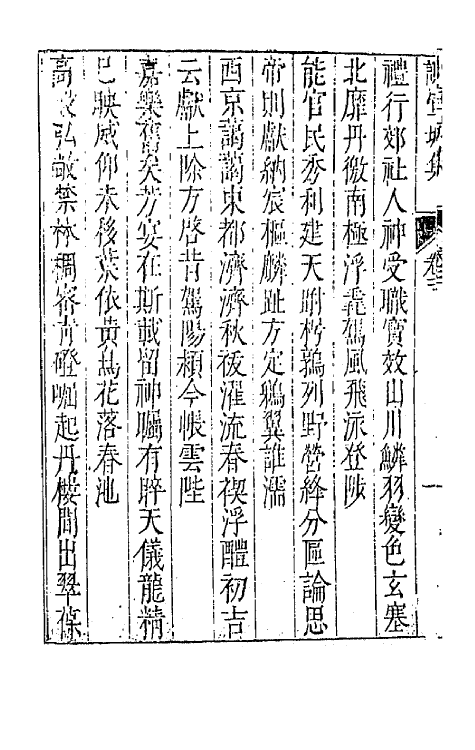 謝宣城集 卷三 一
禮行郊社人神受職寳效山川鱗羽變色玄塞
北靡丹徼南極浮毳駕風飛泳登陟
能官民秀利建天跗枵鶉列野營絳分區論思
帝則獻納宸樞麟趾方定鵷翼誰濡
西京藹藹東都濟濟秋祓濯流春禊浮醴初吉
云獻上除方啓昔駕陽潁今帳雲陛
嘉樂舊矣芳宴在斯載留神矚有睟天儀龍精
已映威仰未移葉依黄鳥花落春池
高殿弘敞禁林稠密青磴崛起丹樓間出翠葆